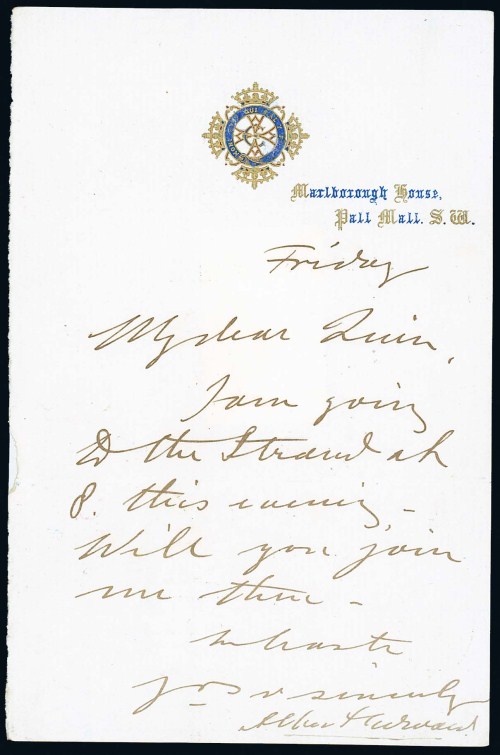 HONI SOIT QUI MAL Y PENSE
Marlborough House,
Pall Mall. S. W.
Friday
My dear Quin,
I am going
to the Strand at
8. this evening –
Will you join
me there –
In haste
yrs v sincerely
Albert Edward